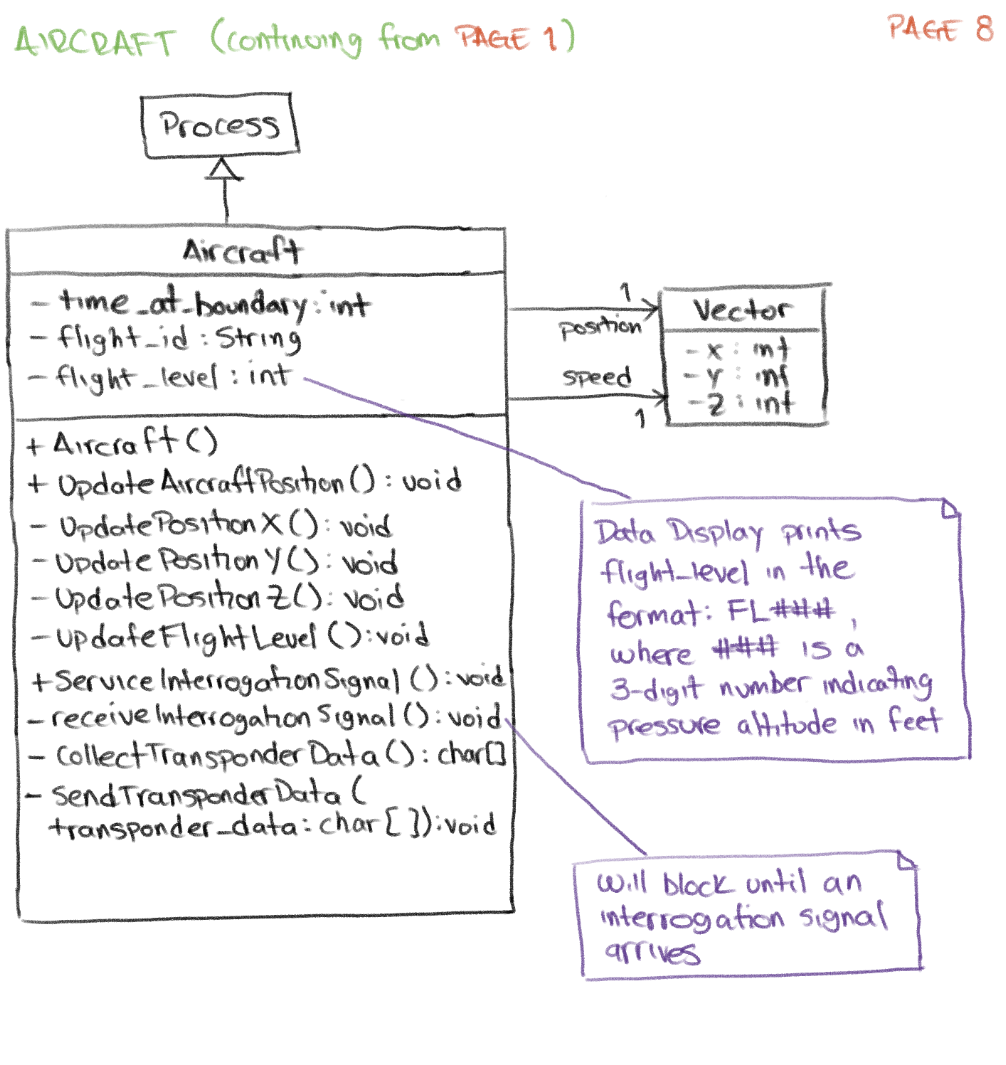 AIRCRAFT (continuing from PAGE 1)
PAGE 8
Process
Aircraft
- time_at_boundary: int
- flight_id : String
- flight_level : int
+ Aircraft()
+ UpdateAircraftPosition() : void
- UpdatePositionX() : void
- UpdatePositionY() : void
- UpdatePositionZ() : void
- UpdateFlightLevel() : void
+ ServiceInterrogationSignal() : void
- receiveInterrogationSignal() : void
- CollectTransponderData() : char[]
- SendTransponderData(
transporder_data: char[]):void
1
position
speed
1
Vector
- x : int
- y : int
- z : int
Data Display prints
flight_level in the
format: FL###,
where ### is a
3-digit number indicating
pressure altitude in feet
Will block until an
interrogation signal
arrives